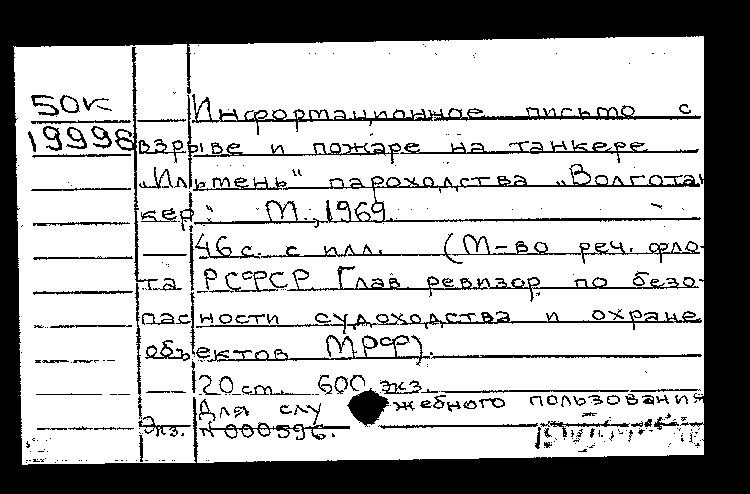 50К
Информационное письмо о
19996 взрыве и пожаре на танкере
„Ильмень" пароходства „Волготан
кер: М., 1969.
46 с. с илл. (М-во реч. фло-
та РСФСР. Глав ревизор по безо-
пасности судоходства и охране
объектов МРФ).
20 см. 600 экз.
Для служебного пользования
Экз. №000596.